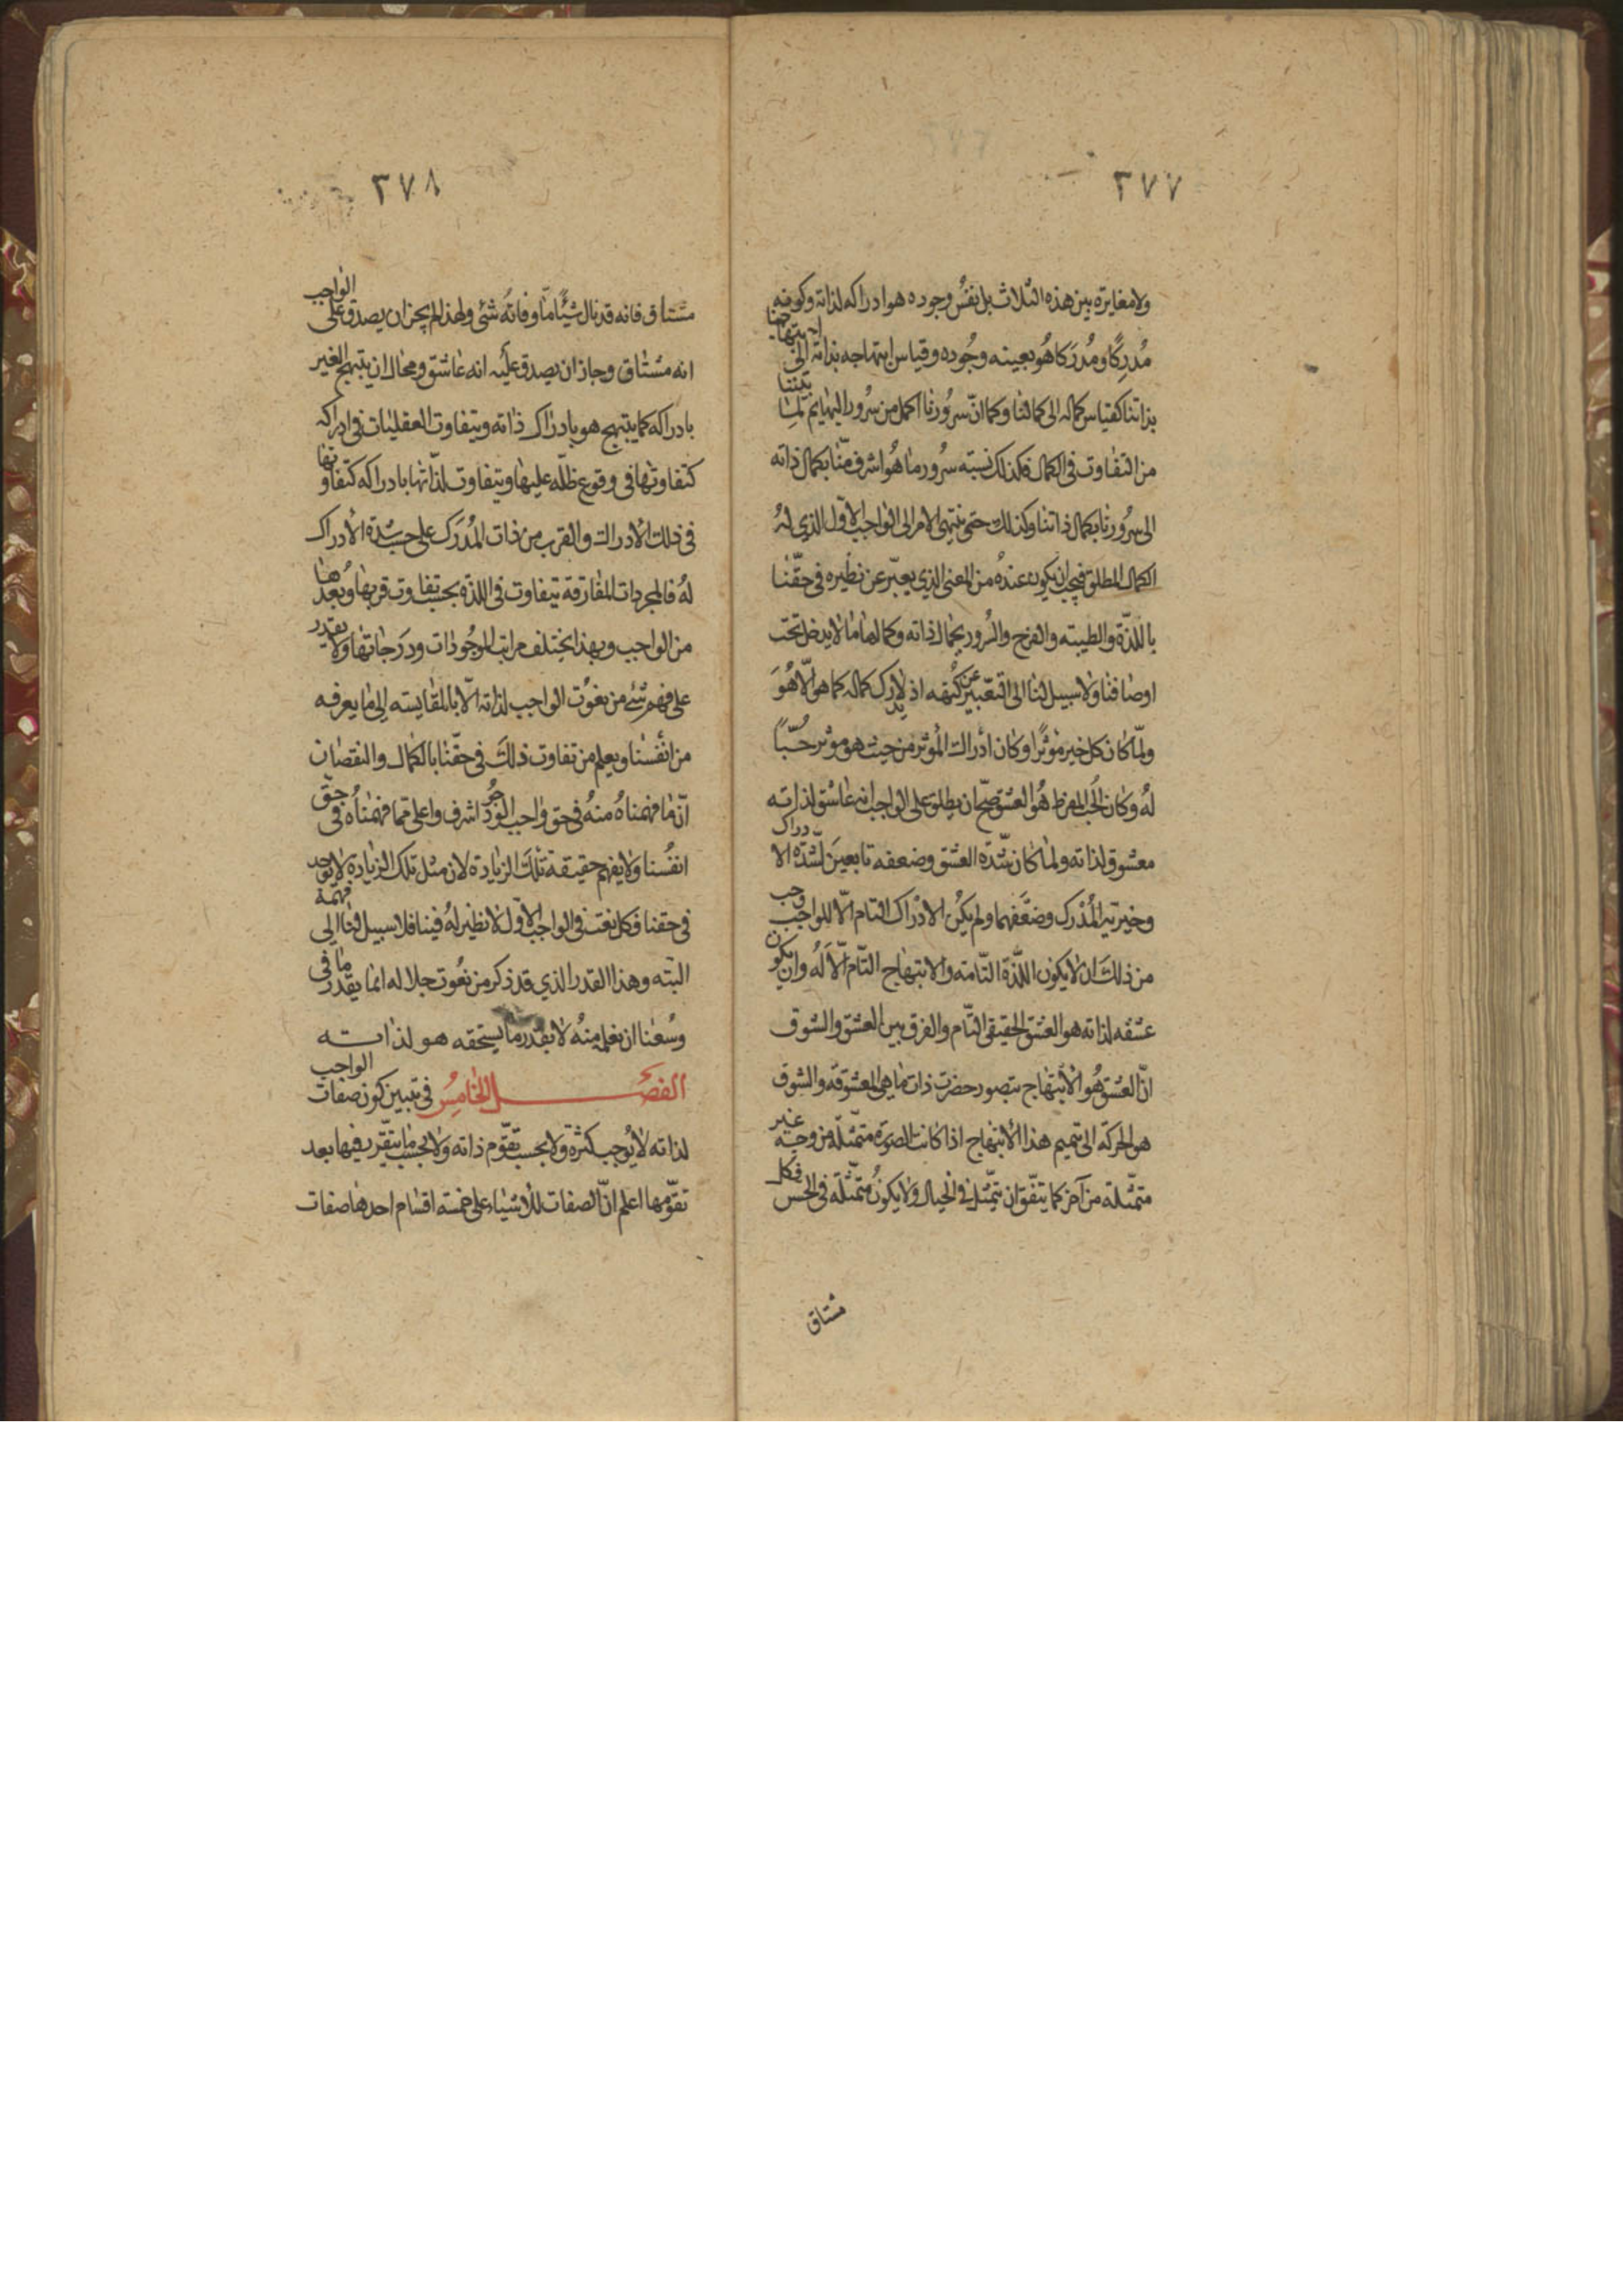 ٣٧٧
ولا مغايرة بين هذه الثلاث بل نفس وجوده هو ادراكه لذاته وكونه
مُدرِكًا ومُدرَكا هُو بعينه وجُوده وقياس ابتهاجه بذاته الى ابتهاجنا
بذاتنا كقياس كماله الى كمالنا وكما انّ سرُورنا اكمل من سرُور البهايم لما بيننا
من التفاوت فى الكمال فكذلك نسبته سرُور ما هُو اشرف منّا بكمال ذاته
الى سرُورنا بكمال ذاتنا وكذلك حتى ينتهى الامر الى الواجب الاوّل الذي لهُ
الكمال المطلق فيجب ان يكون عندهُ من المعنى الذي يعبّر عن نظيره فى حقّنا
باللذّة والطيبته والفرح والسُرور بجمال ذاته وكمالها ما لا يدخل تحت
اوصافنا ولا سبيل لنا الى التعّبير عن كُنهه اذ لا يدرك كماله كما هى الّا هُوَ
ولمّا كان كل خير مُوثرًا وكان ادراك المُوثر من حيث هو موثر حُبّاً
لهُ وكان الحُب المفرط هُو العشق صحّ ان يطلق على الواجب انه عاشق لذاته
معشوق لذاته ولما كان شدّه العشق وضعفه تابعين لشدّه الادراك
وخيرتيه المُدْرَك وضعَفهما ولم يكُن الادْراك التام الّا للواجب وجب
من ذلكَ ان لا يكون اللّذة التّامته والابتهاج التّام الّا لَهُ وان يكون
عشقه لذاته هو العشق الحقيقى التّام والفرق بين العشق والشوق
انّ العشق هُو الابتهاج بتصور حضرت ذات ما هى المعشوقه والشوق
هو الحركه الى تتميم هذا الابتهاج اذا كانت الصورة متمثّله من وجه غير
متمثّلة من آخر كما يتفّق ان يتمثّل فى الخيال ولا يكونُ متمثّله فى الحس فكل
مشتاق
٣٧٨
مشتاق فانه قد نال شيئًا ما وفاتهُ شئ ولهذا لم يجز ان يصدق على الواجب
انه مشتاق وجاز ان يصدق عليه انه عاشق ومحال ان يبتهج الغير
بادراكه كما يبتهج هو بادراك ذاته ويتفاوت العقليات فى ادراكه
كتفاوتها فى وقوع ظلّه عليها ويتفاوت لذّاتها بادراكه كتفاوتها
فى ذلك الادراك والقرب من ذات المُدرَك على حسب شدّة الادراك
لهُ فالمجردات المفارقة يتفاوت فى اللذة بحسب تفاوت قربها وبُعدها
من الواجب وبهذا يختلف مراتب الموجُودات ودرَجاتها ولا يقدر
على فهم شئ من نعُوت الواجب لذاته الّا بالمقايسته الى ما يعرفه
من انفُسنا ويعلم من تفاوت ذلكَ فى حقّنا بالكمال والنقصان
انّ ما فهمناهُ منهُ فى حق واجب الوُجود اشرف واعلى مما فهمناهُ فى حقّ
انفُسنا ولا يفهم حقيقة تلكَ الزيادة لان مثل تلك الزياده لا توجد
فى حقنا فكل نعت فى الواجب الاوّل لا نظير لهُ فينا فلا سبيل لنا الى فهمه
البتّه وهذا القدر الذي قد ذكر من نعُوت جلاله انما يقدر ما فى
وسُعنا ان نعلم منهُ لا بقدر ما يستحقه هو لذاته
الفصـل الخامِسُ فى تبيين كون صفات الواجب
لذاته لا يُوجب كثرة ولا بحسب تقوّم ذاته ولا بحسب ما يتقّرر فيها بعد
تقوّمها اعلم انّ الصفات للاشياء على خمسة اقسام احدها صفات